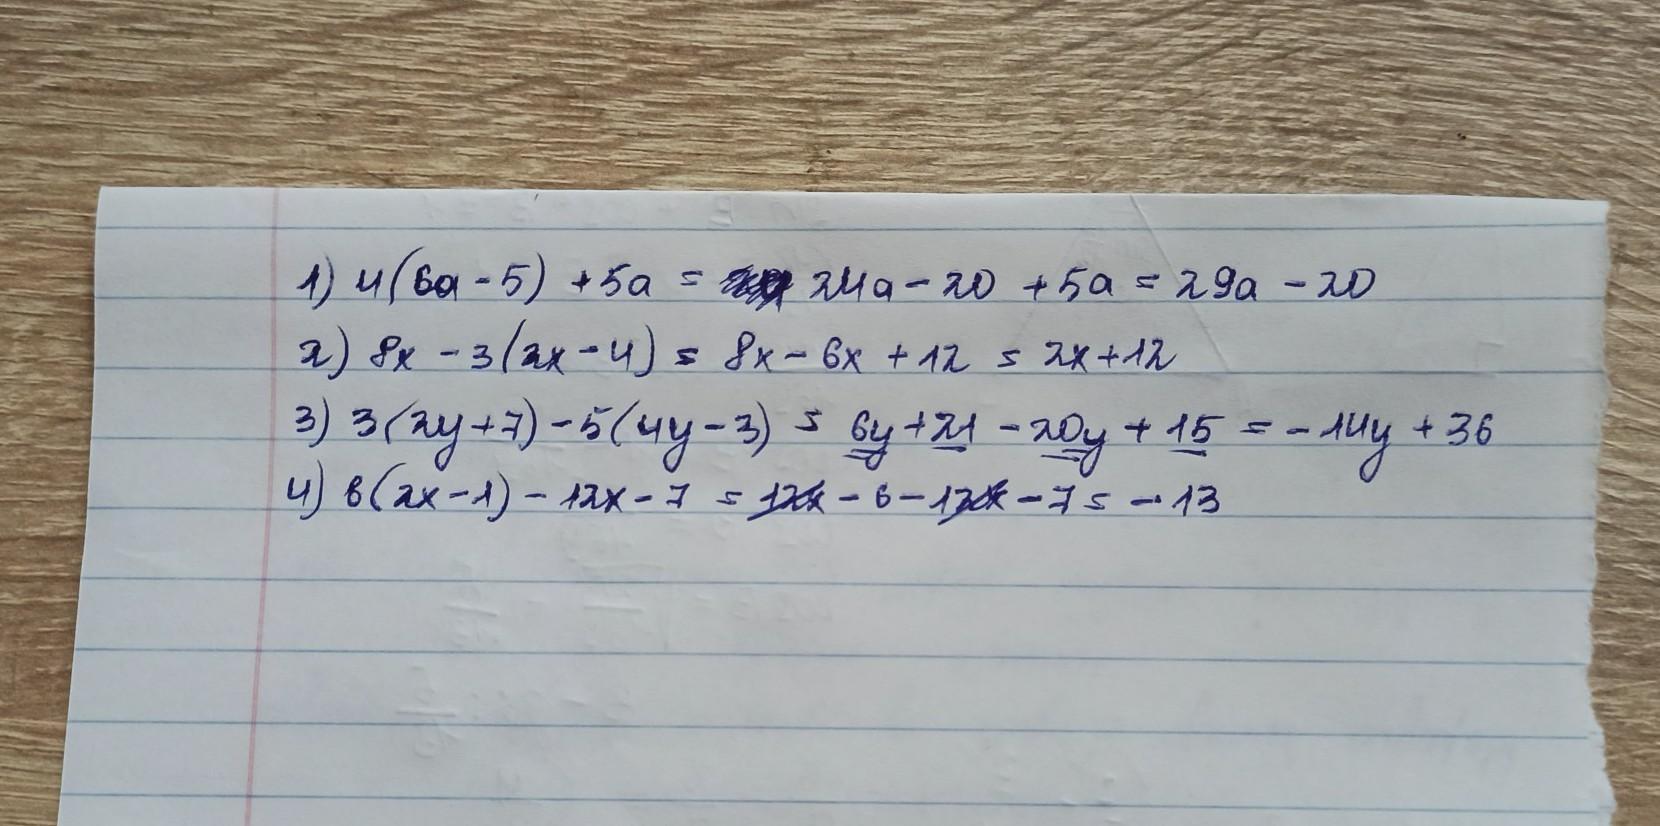 1) 4(6a-5) +5a = 24a-20 +5a = 29a-20
2) 8x-3(2x-4) = 8x-6x+12 = 2x+12
3) 3(2y+7)-5(4y-3) = 6y+21-20y+15 = -14y+36
4) 6(2x-1)-12x-7 = 12x-6-12x-7 = -13